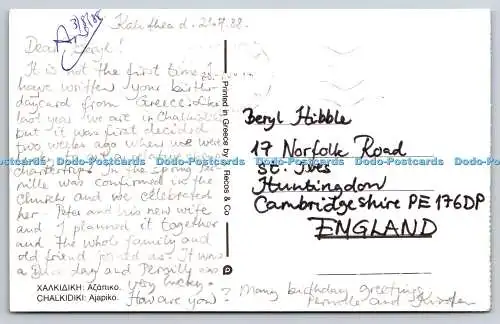 3/8/88
Kalithea d. 21.07.88.
Dear Beryl!
It is not the first time I
have written your birth
daycard from Greece. Like
last year we are in Chalkidiki
but it was first decided
two weeks ago when we were
chartertrips. In the spring Per
nille was confirmed in the
church and we celebrated
her. Peter and his new wife
and I planned it together
and the whole family and
old friend joined us. It was
a day and Pernille was
very lucky.
How are you? Many birthday greetings
Pernille and
Beryl Hibble
17 Norfolk Road
St. Ives
Huntingdon
Cambridgeshire PE 176DP
ENGLAND
Printed in Greece by Recos & Co
ΧΑΛΚΙΔΙΚΗ: Αζάπικο.
CHALKIDIKI: Ajapiko.
Dodo-Postcards Dodo-Postcards Dodo-Postcards Dodo-Postcards Dodo-Postcards